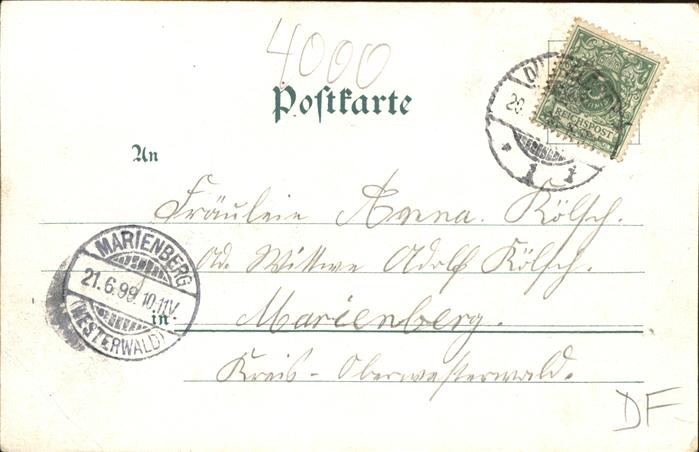 4000
Postkarte
5
REICHSPOST
20.
1 i
An
Fräulein Anna. Kölsch.
Ad. Wittwe Adolf Kölsch.
MARIENBERG
21.6.99.10-11V.
(WESTERWALD)
in Marienberg.
Kreis - Oberwesterwald.
DF